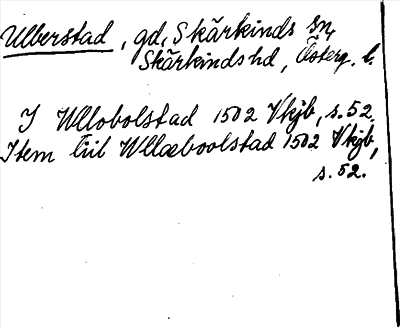 Ulberstad, gd, Skärkinds sn,
Skärkinds hd, Österg. l.
I Wllobolstad 1502 Vkjb, s. 52.
Item tiil Wllæboolstad 1502 Vkjb,
s. 52.